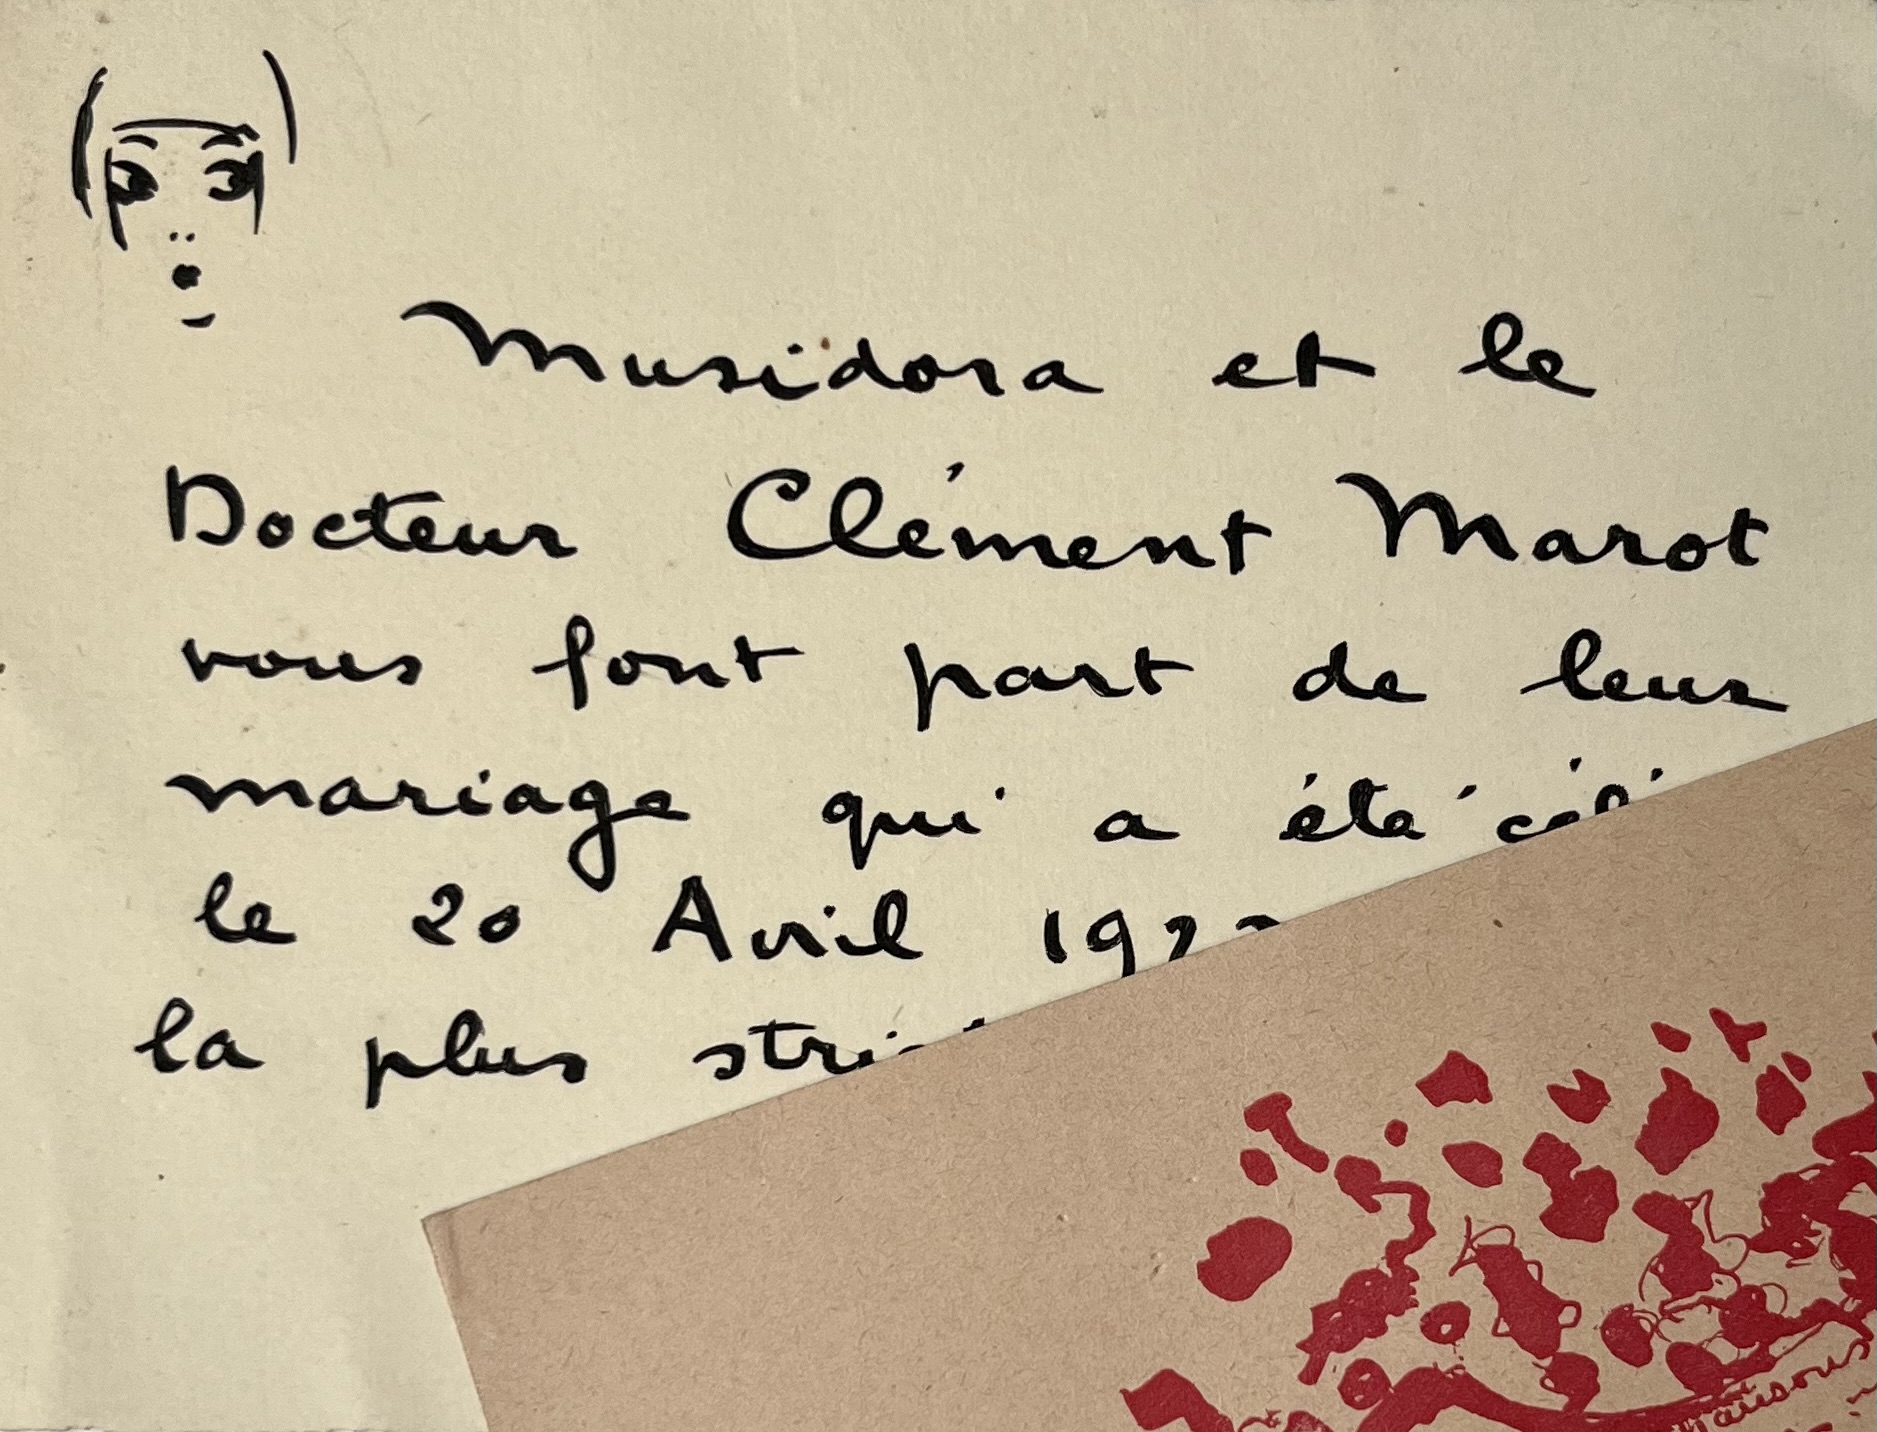 Musidora et le
Docteur Clément Marot
vous font part de leur
mariage qui a été
le 20 Avril
la plus